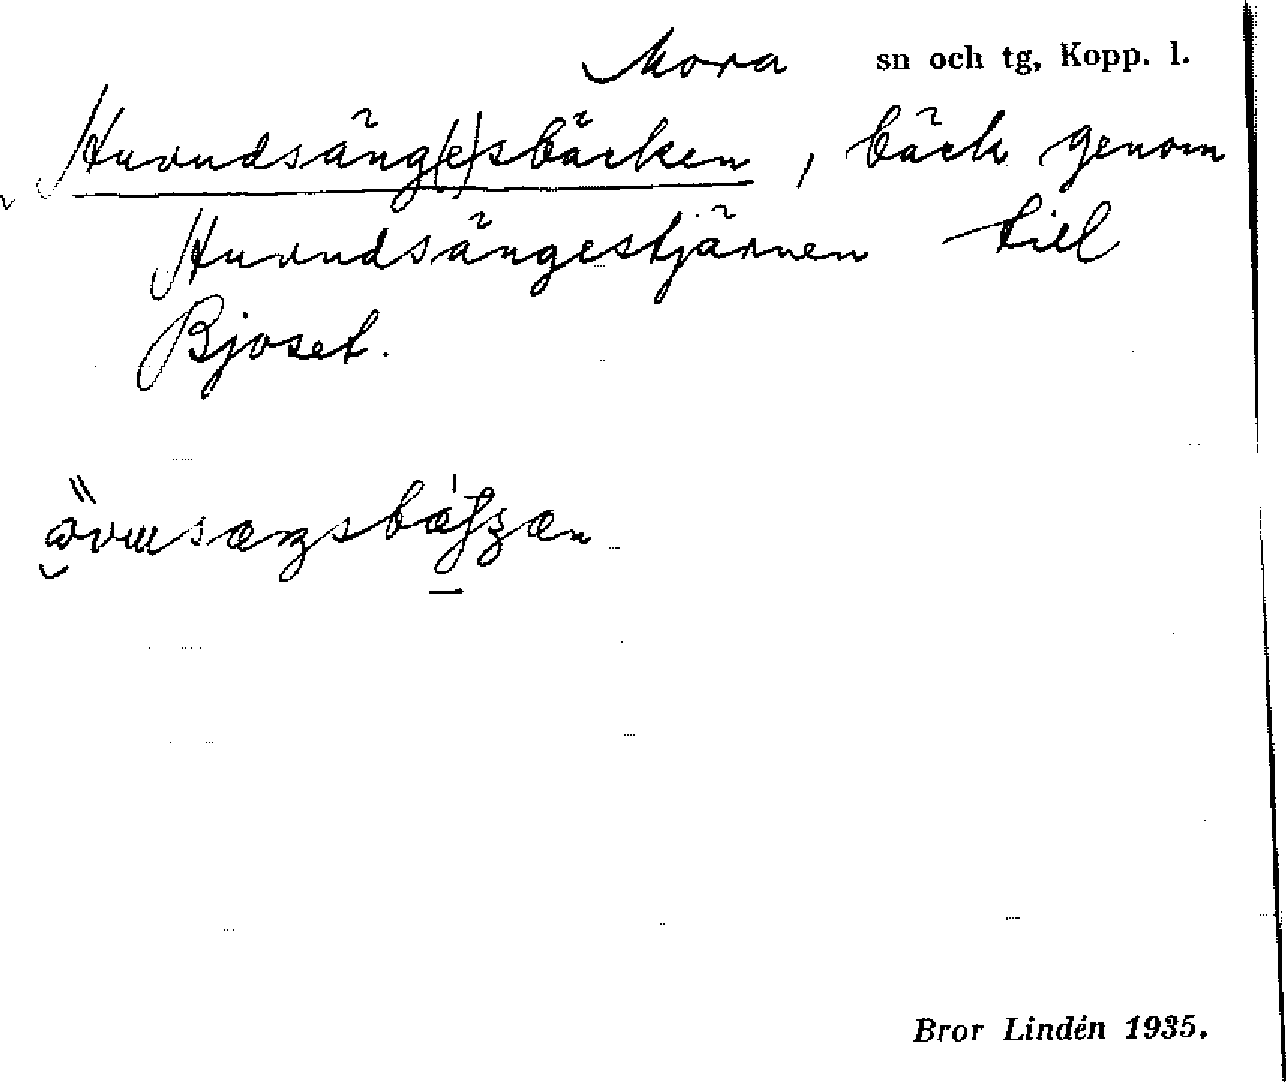 Mora sn och tg, Kopp. l.
Huvudsäng(e)sbäcken, bäck genom
Huvudsängestjärnen till
Bjoset.
Bror Lindén 1935.